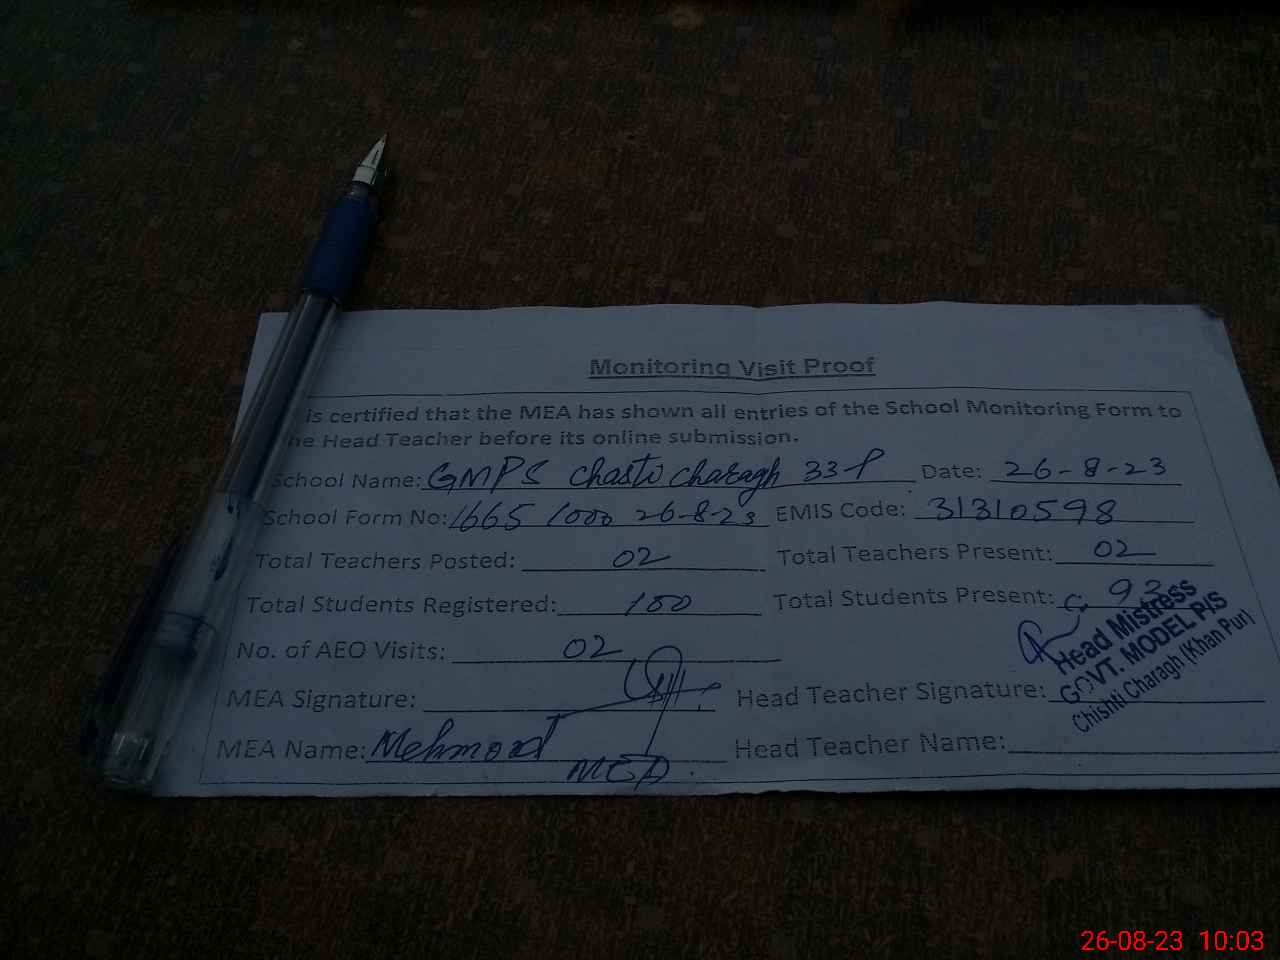 Monitoring Visit Proof
is certified that the MEA has shown all entries of the School Monitoring Form to
he Head Teacher before its online submission.
School Name: GMPS Chasti Charagh 33-P Date: 26-8-23
School Form No: 1665 1000 26-8-23 EMIS Code: 31310598
Total Teachers Posted: 02 Total Teachers Present: 02
Total Students Registered: 100 Total Students Present: 93
No. of AEO Visits: 02
Head Mistress
GOVT. MODEL P/S
Chishti Charagh (Khan Pur)
MEA Signature: Head Teacher Signature:
MEA Name: Mehmood Head Teacher Name:
MEA
26-08-23 10:03